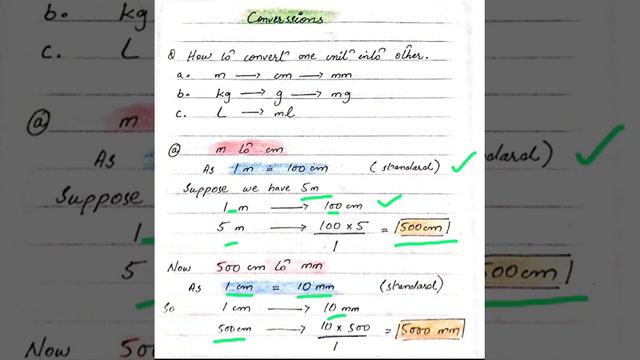 Conversions
Q How to convert one unit into other.
a. m → cm → mm
b. kg → g → mg
c. L → ml
ⓐ m to cm
As 1 m = 100 cm (standard)
Suppose we have 5m
1 m → 100 cm
5 m → 100 x 5 / 1 = 500cm
Now 500 cm to mm
As 1 cm = 10 mm (standard)
So 1 cm → 10 mm
500cm → 10 x 500 / 1 = 5000 mm